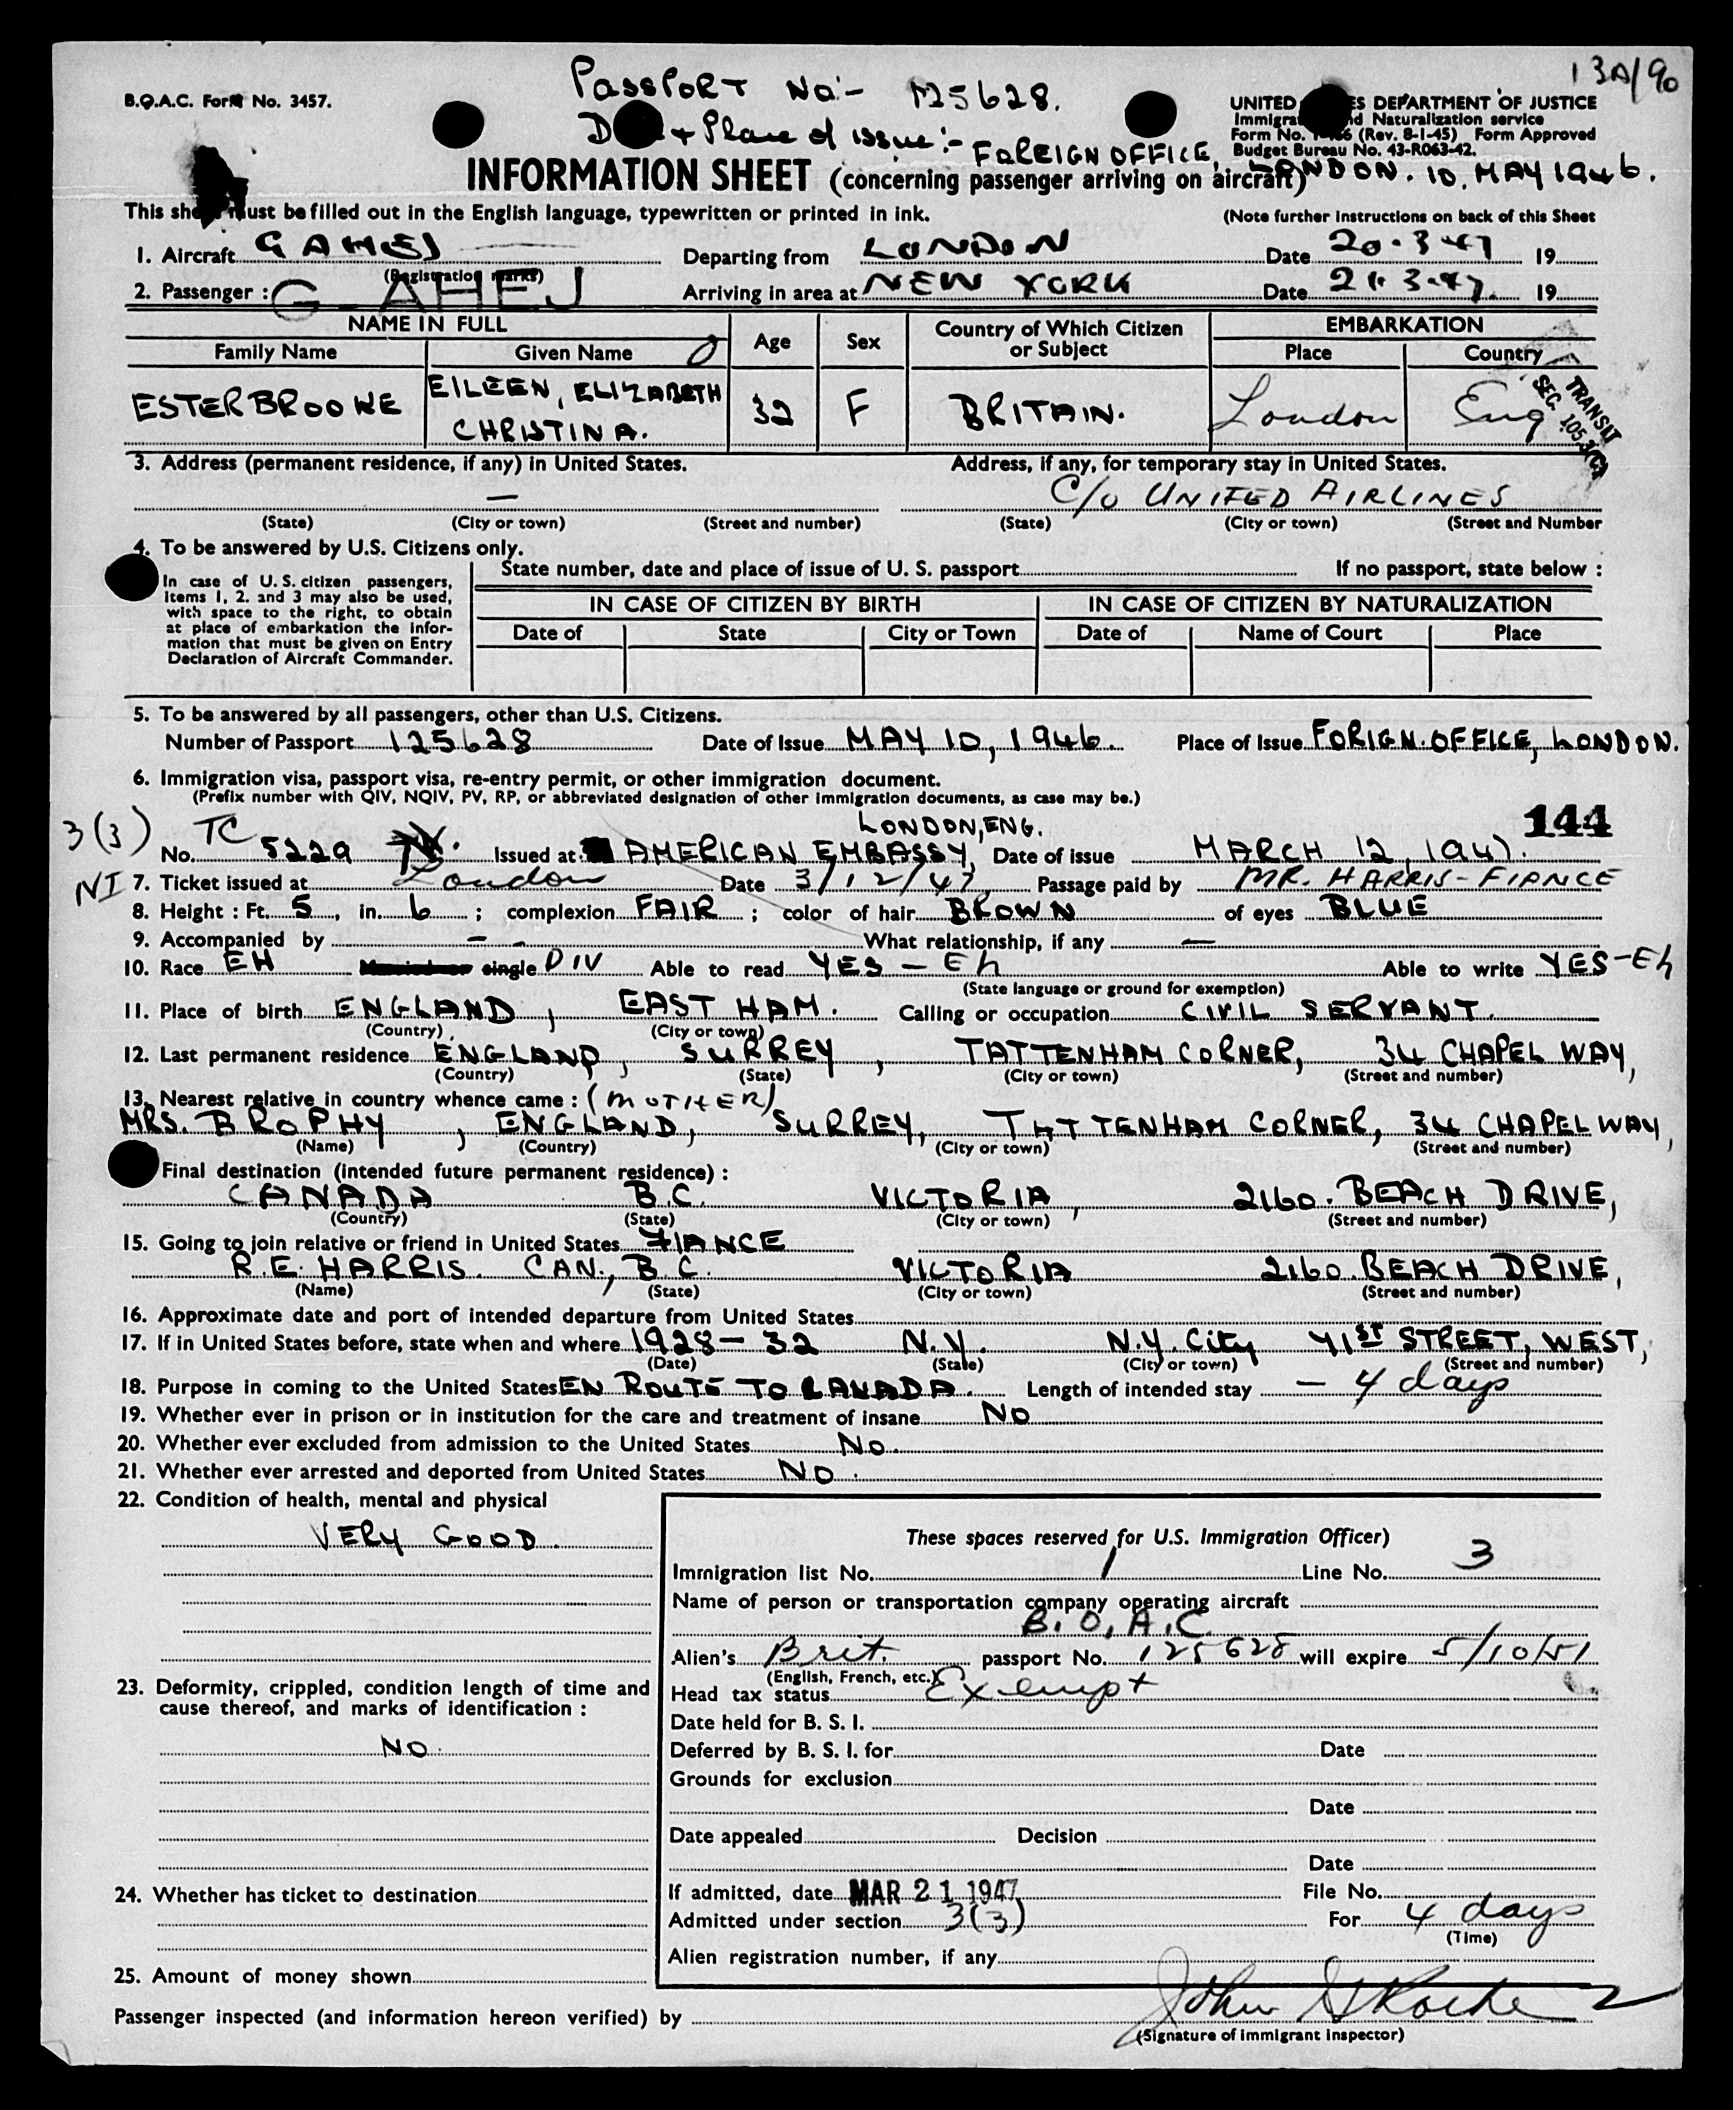 13A/90
PASSPORT No:- 125628.
B.O.A.C. Form No. 3457.
UNITED ES DEPARTMENT OF JUSTICE
Immigra d Naturalization service
Form No. (Rev. 8-1-45) Form Approved
Budget Bureau No. 43-R063-42.
D + Place of issue:- FOREIGN OFFICE, LONDON. 10, MAY 1946.
INFORMATION SHEET (concerning passenger arriving on aircraft)
This she must be filled out in the English language, typewritten or printed in ink. (Note further instructions on back of this Sheet
1. Aircraft GAHEJ Departing from LONDON Date 20.3.47 19
(Registration marks)
2. Passenger : G-AHEJ Arriving in area at NEW YORK Date 21.3.47. 19
NAME IN FULL Age Sex Country of Which Citizen or Subject EMBARKATION
Family Name Given Name Place Country
ESTERBROOKE EILEEN, ELIZABETH CHRISTINA. 32 F BRITAIN. London Eng
TRANSIT
SEC. 105.3(C)
3. Address (permanent residence, if any) in United States. Address, if any, for temporary stay in United States.
— C/O UNITED AIRLINES
(State) (City or town) (Street and number) (State) (City or town) (Street and Number
4. To be answered by U.S. Citizens only.
State number, date and place of issue of U. S. passport If no passport, state below :
In case of U. S. citizen passengers,
items 1, 2. and 3 may also be used,
with space to the right, to obtain
at place of embarkation the infor-
mation that must be given on Entry
Declaration of Aircraft Commander.
IN CASE OF CITIZEN BY BIRTH IN CASE OF CITIZEN BY NATURALIZATION
Date of State City or Town Date of Name of Court Place
5. To be answered by all passengers, other than U.S. Citizens.
Number of Passport 125628 Date of Issue MAY 10, 1946. Place of Issue FORIGN. OFFICE, LONDON.
6. Immigration visa, passport visa, re-entry permit, or other immigration document.
(Prefix number with QIV, NQIV, PV, RP, or abbreviated designation of other immigration documents, as case may be.)
144
3(3) TC LONDON, ENG.
No. 5229 Issued at AMERICAN EMBASSY, Date of issue MARCH 12, 1947.
NI 7. Ticket issued at London Date 3/12/47 Passage paid by MR. HARRIS - FIANCE
8. Height : Ft. 5, in. 6 ; complexion FAIR ; color of hair BROWN of eyes BLUE
9. Accompanied by - - What relationship, if any —
10. Race EH Married or single DIV Able to read YES - Eh Able to write YES - Eh
(State language or ground for exemption)
11. Place of birth ENGLAND, EAST HAM. Calling or occupation CIVIL SERVANT.
(Country) (City or town)
12. Last permanent residence ENGLAND, SURREY, TATTENHAM CORNER, 34 CHAPEL WAY,
(Country) (State) (City or town) (Street and number)
13. Nearest relative in country whence came : (MOTHER)
MRS. BROPHY, ENGLAND, SURREY, TATTENHAM CORNER, 34 CHAPEL WAY,
(Name) (Country) (City or town) (Street and number)
Final destination (intended future permanent residence) :
CANADA B.C. VICTORIA, 2160. BEACH DRIVE,
(Country) (State) (City or town) (Street and number)
15. Going to join relative or friend in United States FIANCE
R.E. HARRIS. CAN., B.C. VICTORIA 2160. BEACH DRIVE,
(Name) (State) (City or town) (Street and number)
16. Approximate date and port of intended departure from United States
17. If in United States before, state when and where 1928 - 32 N.Y. N.Y. City 71ST STREET, WEST,
(Date) (State) (City or town) (Street and number)
18. Purpose in coming to the United States EN ROUTE TO CANADA. Length of intended stay — 4 days
19. Whether ever in prison or in institution for the care and treatment of insane NO
20. Whether ever excluded from admission to the United States NO.
21. Whether ever arrested and deported from United States NO.
22. Condition of health, mental and physical
VERY GOOD.
These spaces reserved for U.S. Immigration Officer)
Immigration list No. 1 Line No. 3
Name of person or transportation company operating aircraft
B.O.A.C.
Alien's Brit. passport No. 125628 will expire 5/10/51
(English, French, etc.)
23. Deformity, crippled, condition length of time and
cause thereof, and marks of identification :
NO.
Head tax status Exempt
Date held for B. S. I.
Deferred by B. S. I. for Date
Grounds for exclusion
Date
Date appealed Decision
Date
24. Whether has ticket to destination
If admitted, date MAR 21 1947 File No.
Admitted under section 3(3) For 4 days
(Time)
Alien registration number, if any
25. Amount of money shown
Passenger inspected (and information hereon verified) by John
(Signature of immigrant Inspector)